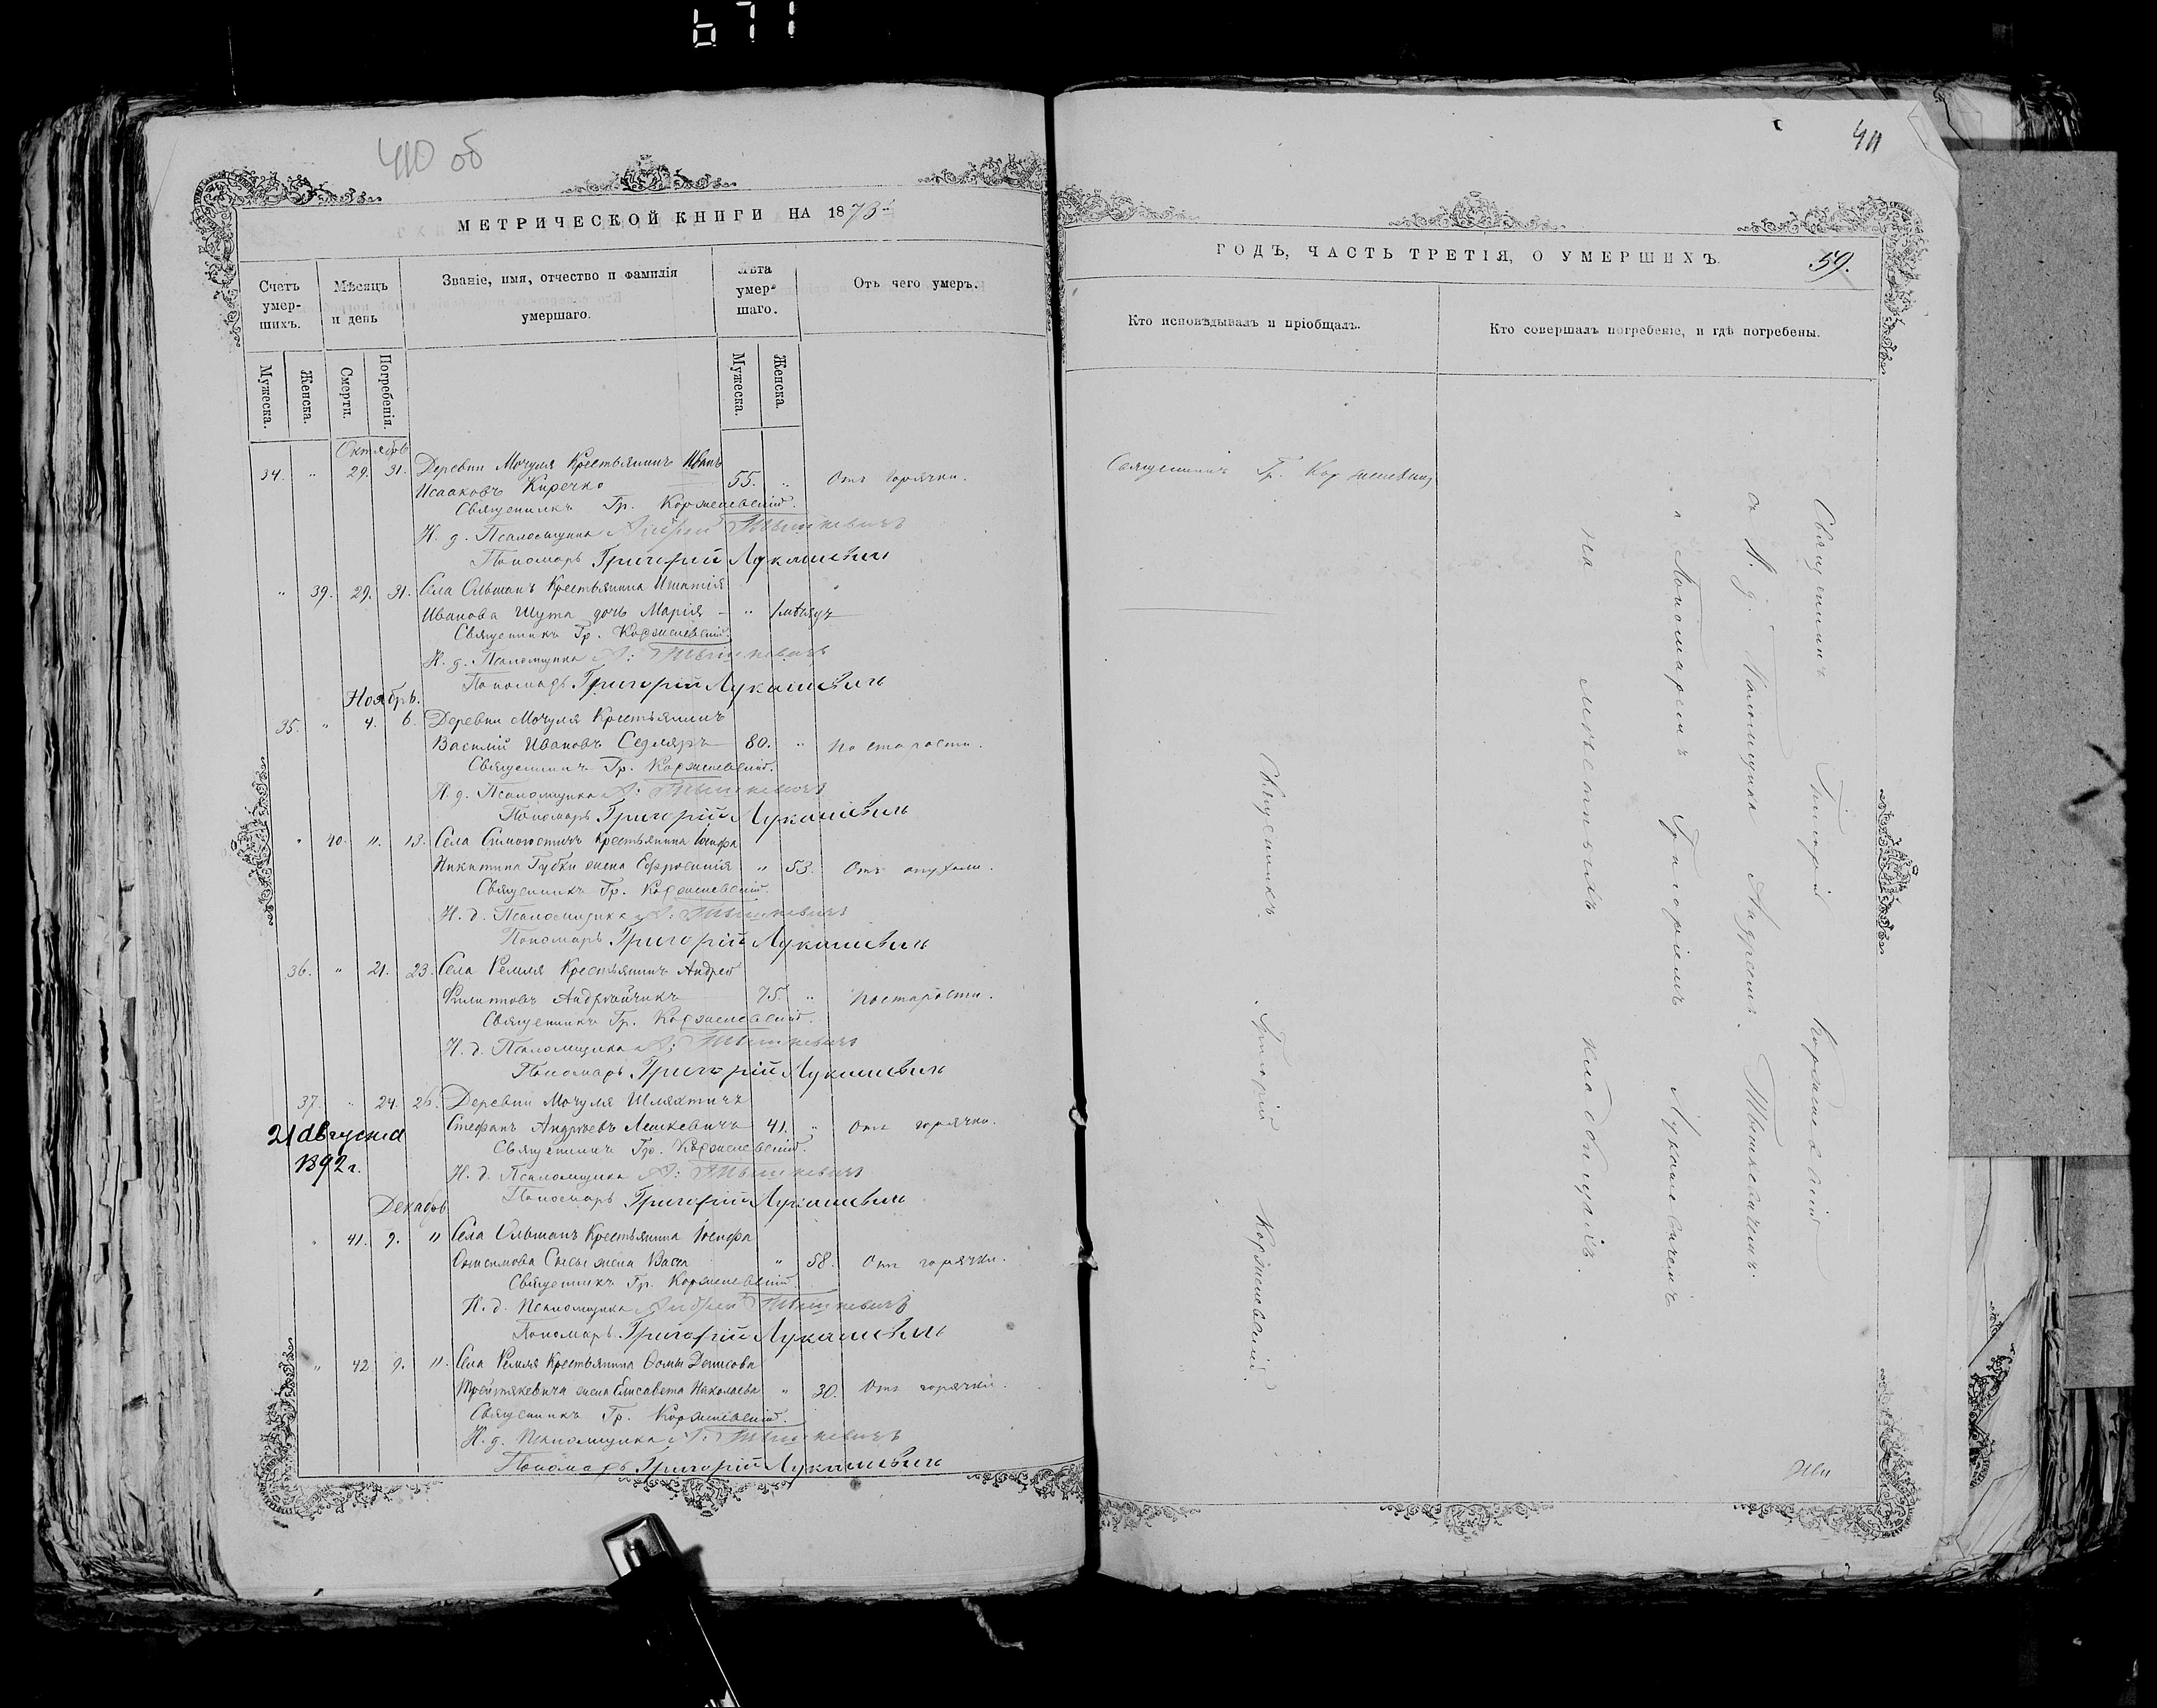 671
410 об
МЕТРИЧЕСКОЙ КНИГИ НА 1873
Счетъ умер-шихъ.
Мѣсяцъ и день
Званіе, имя, отчество и фамилія умершаго.
Лѣта умер-шаго.
Отъ чего умеръ.
Мужеска.
Женска.
Смерти.
Погребенія.
Мужеска.
Женска.
Октябрь
34. " 29. 31. Деревни Мочуля Крестьянинъ Иванъ
Исааковъ Киречко 55. " Отъ горячки.
Священникъ Гр. Корженевскій.
И. д. Псаломщика Андрей Тышкевичъ
Пономарь Григорій Лукашевичъ
" 39. 29. 31. Села Ольманъ Крестьянина Игнатія
Иванова Шута дочь Марія "
Священникъ Гр. Корженевскій.
И. д. Псаломщика А: Тышкевичъ
Пономарь Григорій Лукашевичъ
Ноябрь.
35. " 4. 6. Деревни Мочуля Крестьянинъ
Василій Ивановъ Седляръ 80. " По старости.
Священникъ Гр. Корженевскій.
И. д. Псаломщика А: Тышкевичъ
Пономарь Григорій Лукашевичъ
" 40. 11. 13. Села Крестьянина Іосифа
Никитина Губки жена Ефросинія " 53. Отъ опухоли.
Священникъ Гр. Корженевскій.
И. д. Псаломщика А: Тышкевичъ
Пономарь Григорій Лукашевичъ
36. " 21. 23. Села Ремля Крестьянинъ Андрей
Филипповъ Андрейчикъ 75. " По старости.
Священникъ Гр. Корженевскій.
И. д. Псаломщика А: Тышкевичъ
Пономарь Григорій Лукашевичъ
37. " 24. 26. Деревни Мочуля Шляхтичъ
Стефанъ Андреевъ Лешкевичъ 41. " Отъ горячки.
21 августа
1892 г.
Священникъ Гр. Корженевскій.
И. д. Псаломщика А: Тышкевичъ
Пономарь Григорій Лукашевичъ
Декабрь
" 41. 9. 11 Села Ольманъ Крестьянина Іосифа
жена Васса " 58. Отъ горячки.
Священникъ Гр. Корженевскій.
И. д. Псаломщика Андрей Тышкевичъ
Пономарь Григорій Лукашевичъ
" 42 9. 11. Села Ремля Крестьянина Ѳомы Денисова
жена Елисавета Николаева " 30. Отъ горячки.
Священникъ Гр. Корженевскій.
И. д. Псаломщика А: Тышкевичъ
Пономарь Григорій Лукашевичъ
411
ГОДЪ, ЧАСТЬ ТРЕТІЯ, О УМЕРШИХЪ.
59.
Кто исповѣдывалъ и пріобщалъ.
Кто совершалъ погребеніе, и гдѣ погребены.
Священникъ Гр. Корженевскій
Священникъ Григорій Корженевскій
Священникъ Григорій Корженевскій
съ И. д. Псаломщика Андреемъ Тышкевичемъ
и Пономаремъ Григоріемъ Лукашевичемъ
на мѣстномъ кладбищѣ.